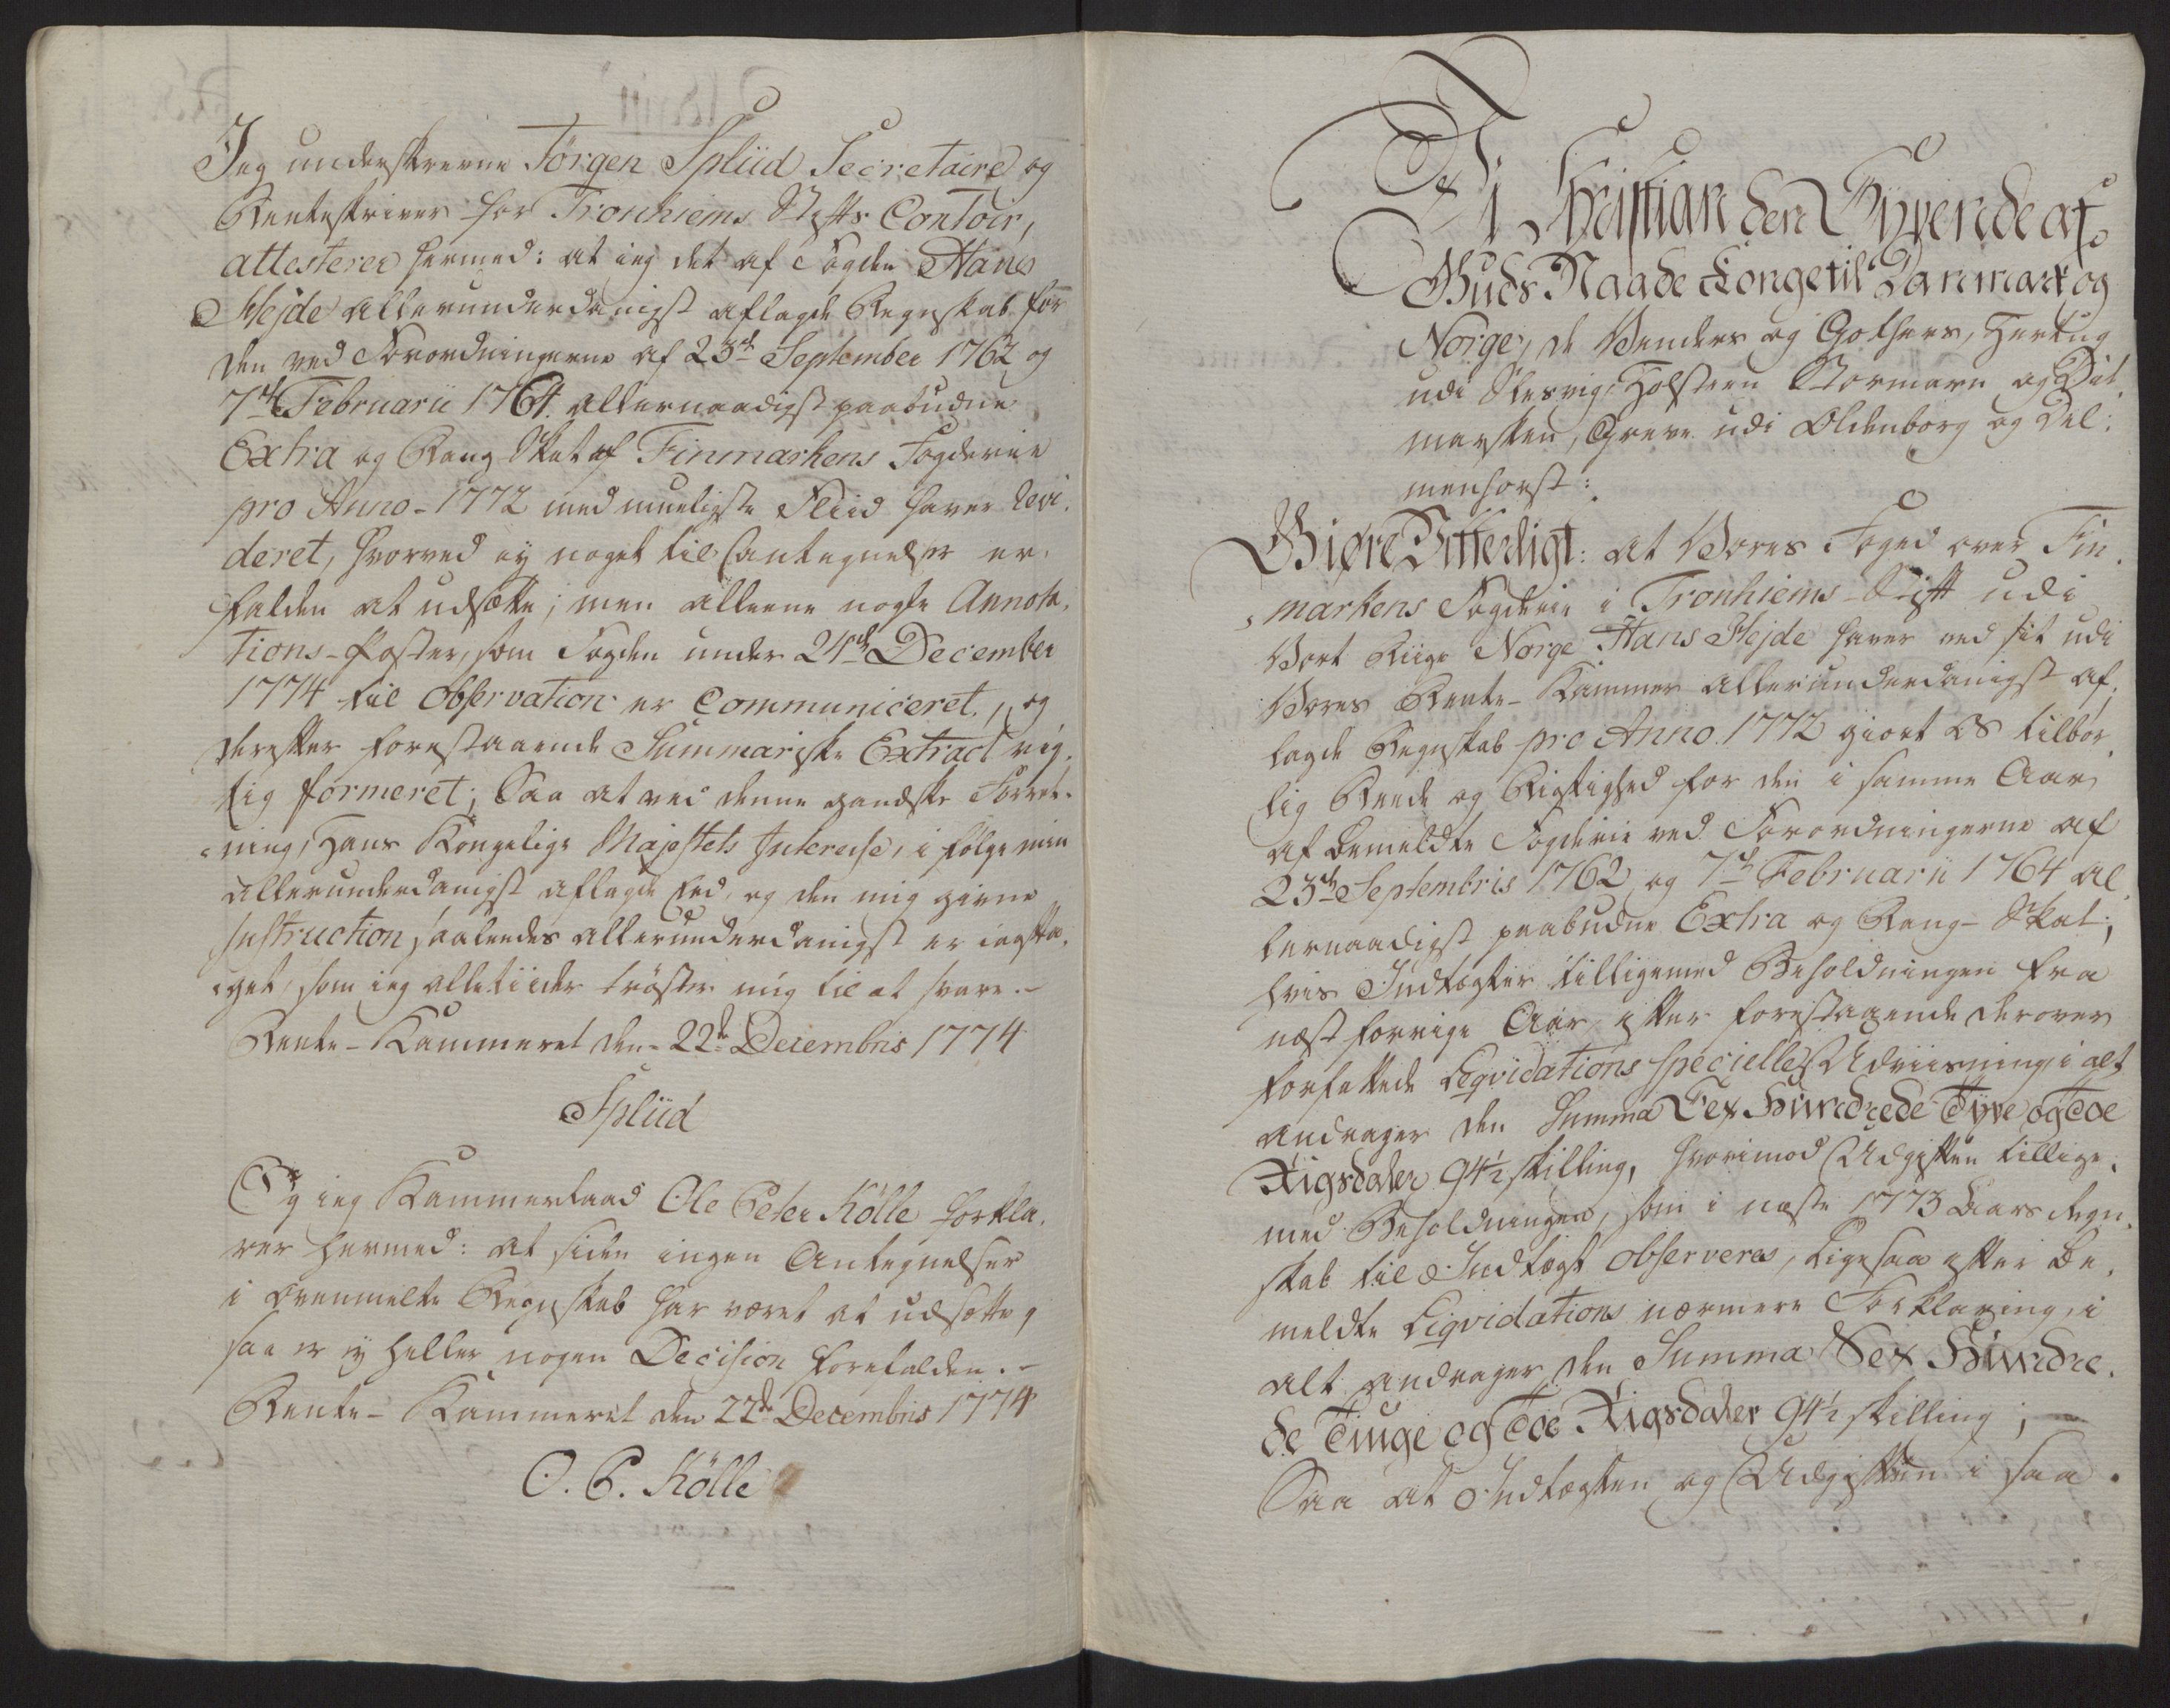 Jeg underskrevne Jörgen Spliid Secretaire og
Renteskriver for Tronhiems Stifts Contoir,
attesterer hermed: at ieg det af Fogden Hans
Hejde allerunderdanigst aflagde Regnskab for
den ved Forordningerne af 23de September 1762 og
7de Februarii 1764 allernaadigst paabudne
Extra og Rang Skat af Finmarkens Fogderie
pro Anno 1772 med mueligste Fliid haver revi-
deret, hvorved ey noget til Antegnelse er
falden at udsætte; men alleene nogle Annota-
tions-Poster, som Fogden under 21de December
1774 til Observation er Communiceret, og
derefter forestaaende Summariske Extract rig-
tig formeret; Saa at ved denne gandske Forret-
ning, Hans Kongelige Majestets Interesse, i følge min
allerunderdanigst aflagde Eed, og den mig givne
Instruction, saaledes allerunderdanigst er iagtta-
get, som ieg alletiider tröster mig til at svare.-
Rente-Kammeret den 22de Decembris 1774
Spliid
Og ieg Kammerraad Ole Peter Kölle forkla-
rer hermed: at siden ingen Antegnelser
i ovenmelte Regnskab har været at udsætte,
saa er ey heller nogen Decision forefalden.-
Rente-Kammeret den 22de Decembris 1774
O. P. Kölle
Vi Christian den Syvende af
Guds Naade Konge til Danmark og
Norge, de Venders og Gothers, Hertug
udi Slesvig, Holsteen Stormarn og Dit-
marsken, Greve udi Oldenborg og Del-
menhorst:
Giøre Vitterligt: at Vores Foged over Fin-
markens Fogderie i Tronhiems-Stift udi
Vort Riige Norge Hans Hejde haver ved sit udi
Vores Rente-Kammer allerunderdanigst af-
lagde Regnskab pro Anno 1772 giort Os tilbør-
lig Reede og Rigtighed for den i samme Aar
af bemeldte Fogderie ved Forordningerne af
23de Septembris 1762 og 7de Februarii 1764 al-
lernaadigst paabudne Extra og Rang-Skat;
hvis Indtægter tilligemed Beholdningen fra
næst forrige Aar, efter forestaaende derover
forfattede Liqvidations specielle Udviisning, i alt
andrager den Summa Sex Hundrede Tyve og Toe
Rigsdaler 94½ skilling, hvorimod Udgiften tillige-
med Beholdningen, som i næste 1773 Aars Regn-
skab til Indtægt observeres, ligesaa efter be-
meldte Liqvidations nærmere Forklaring, i
alt andrager den Summa Sex Hundre-
de Tiuge og Toe Rigsdaler 94½ skilling;
Saa at Indtægten og Udgiften i saa